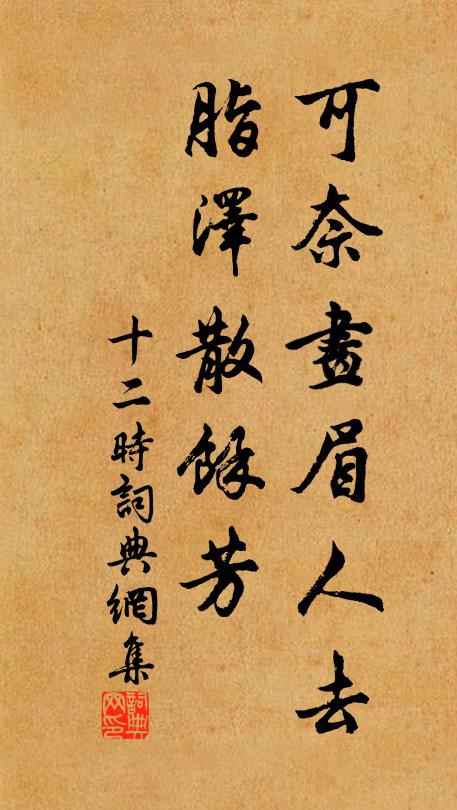 可奈畫眉人去
脂澤散餘芳
十二時詞典網集
詞典網印